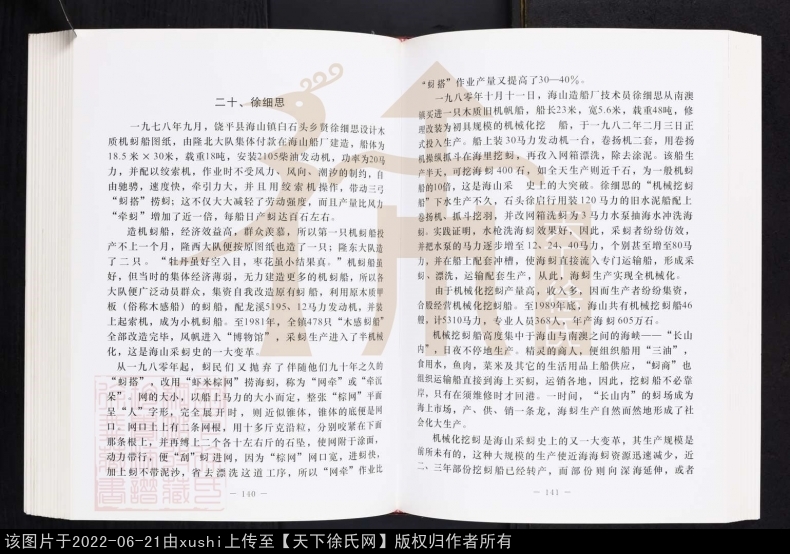 二十、徐细思
一九七八年九月，饶平县海山镇白石头乡贤徐细思设计木
质机蚵船图纸，由隆北大队集体付款在海山船厂建造，船体为
18.5米×30米，载重18吨，安装2105柴油发动机，功率为20马
力，并配以绞索机，作业时不受风力、风向、潮汐的制约，自
由驰骋，速度快，牵引力大，并且用绞索机操作，带动三弓
“蚵搭”捞蚵；这不仅大大减轻了劳动强度，而且产量比风力
“牵蚵”增加了近一倍，每船日产蚵达百石左右。
造机蚵船，经济效益高，群众羡慕，所以第一只机蚵船投
产不上一个月，隆西大队便按原图纸也造了一只；隆东大队造
了二只。“牡丹虽好空入目，枣花虽小结果真。”机蚵船虽
好，但当时的集体经济薄弱，无力建造更多的机蚵船，所以各
大队便广泛动员群众，集资自我改造原有蚵船，利用原木质甲
板（俗称木感船）的蚵船，配龙溪5195、12马力发动机，并装
上起索机，成为小机蚵船。至1981年，全镇478只“木感蚵船”
全部改造完毕，风帆进入“博物馆”，采蚵生产进入了半机械
化，这是海山采蚵史的一大变革。
从一九八零年起，蚵民们又抛弃了伴随他们九十年之久的
“蚵搭”，改用“虾米棕网”捞海蚵，称为“网牵”或“牵沉
朵”。网的大小，以船上马力的大小而定，整张“棕网”平面
呈“人”字形，完全展开时，则近似锥体，锥体的底便是网
口。网口上上有二条网根，用十多斤克沿粒，分别咬紧在下面
那条根上，并再缚上二个各十左右斤的石坠，使网附于涂面，
动力带行，便“刮”蚵进网，因为“棕网”网口宽，进蚵快，
加上蚵不带泥沙，省去漂洗这道工序，所以“网牵”作业比
－140－
“蚵搭”作业产量又提高了30—40%。
一九八零年十月十一日，海山造船厂技术员徐细思从南澳
镇买进一只木质旧机帆船，船长23米，宽5.6米，载重48吨，修
理改装为初具规模的机械化挖 船，于一九八二年二月三日正
式投入生产。船上装30马力发动机一台，卷扬机二套，用卷扬
机操纵抓斗在海里挖蚵，再孜入网箱漂洗，除去涂泥。该船生
产半天，可挖海蚵400石，如全天生产则近千石，为一般机蚵
船的10倍，这是海山采 史上的大突破。徐细思的“机械挖蚵
船”下水生产不久，石头徐启行用装120马力的旧水泥船配上
卷扬机、抓斗挖羽，并改网箱洗蚵为3马力水泵抽海水冲洗海
蚵。实践证明，水枪洗海蚵效果好，因此，采蚵者纷纷仿效，
并把水泵的马力逐步增至12、24、40马力，个别甚至增至80马
力，并在船上配套冲槽，使海蚵直接流入专门运输船，形成采
蚵、漂洗，运输配套生产，从此，海蚵生产实现全机械化。
由于机械化挖蚵产量高，收入多，因而生产者纷纷集资，
合股经营机械化挖蚵船。至1989年底，海山共有机械挖蚵船46
艘，计5310马力，专业人员368人，年产海蚵605万石。
机械挖蚵船高度集中于海山与南澳之间的海峡——“长山
内”，日夜不停地生产。精灵的商人，便组织船用“三油”，
食用水，鱼肉，菜米及其它的生活用品上船供应，“蚵商”也
组织运输船直接到海上买蚵，运销各地，因此，挖蚵船不必靠
岸，只有在须维修时才回港。一时间，“长山内”的蚵场成为
海上市场，产、供、销一条龙，海蚵生产自然而然地形成了社
会化大生产。
机械化挖蚵是海山采蚵史上的又一大变革，其生产规模是
前所未有的，这种大规模的生产使近海海蚵资源迅速减少，近
二、三年部份挖蚵船已经转产，而部份则向深海延伸，或者
－141－
该图片于2022-06-21由xushi上传至【天下徐氏网】版权归作者所有